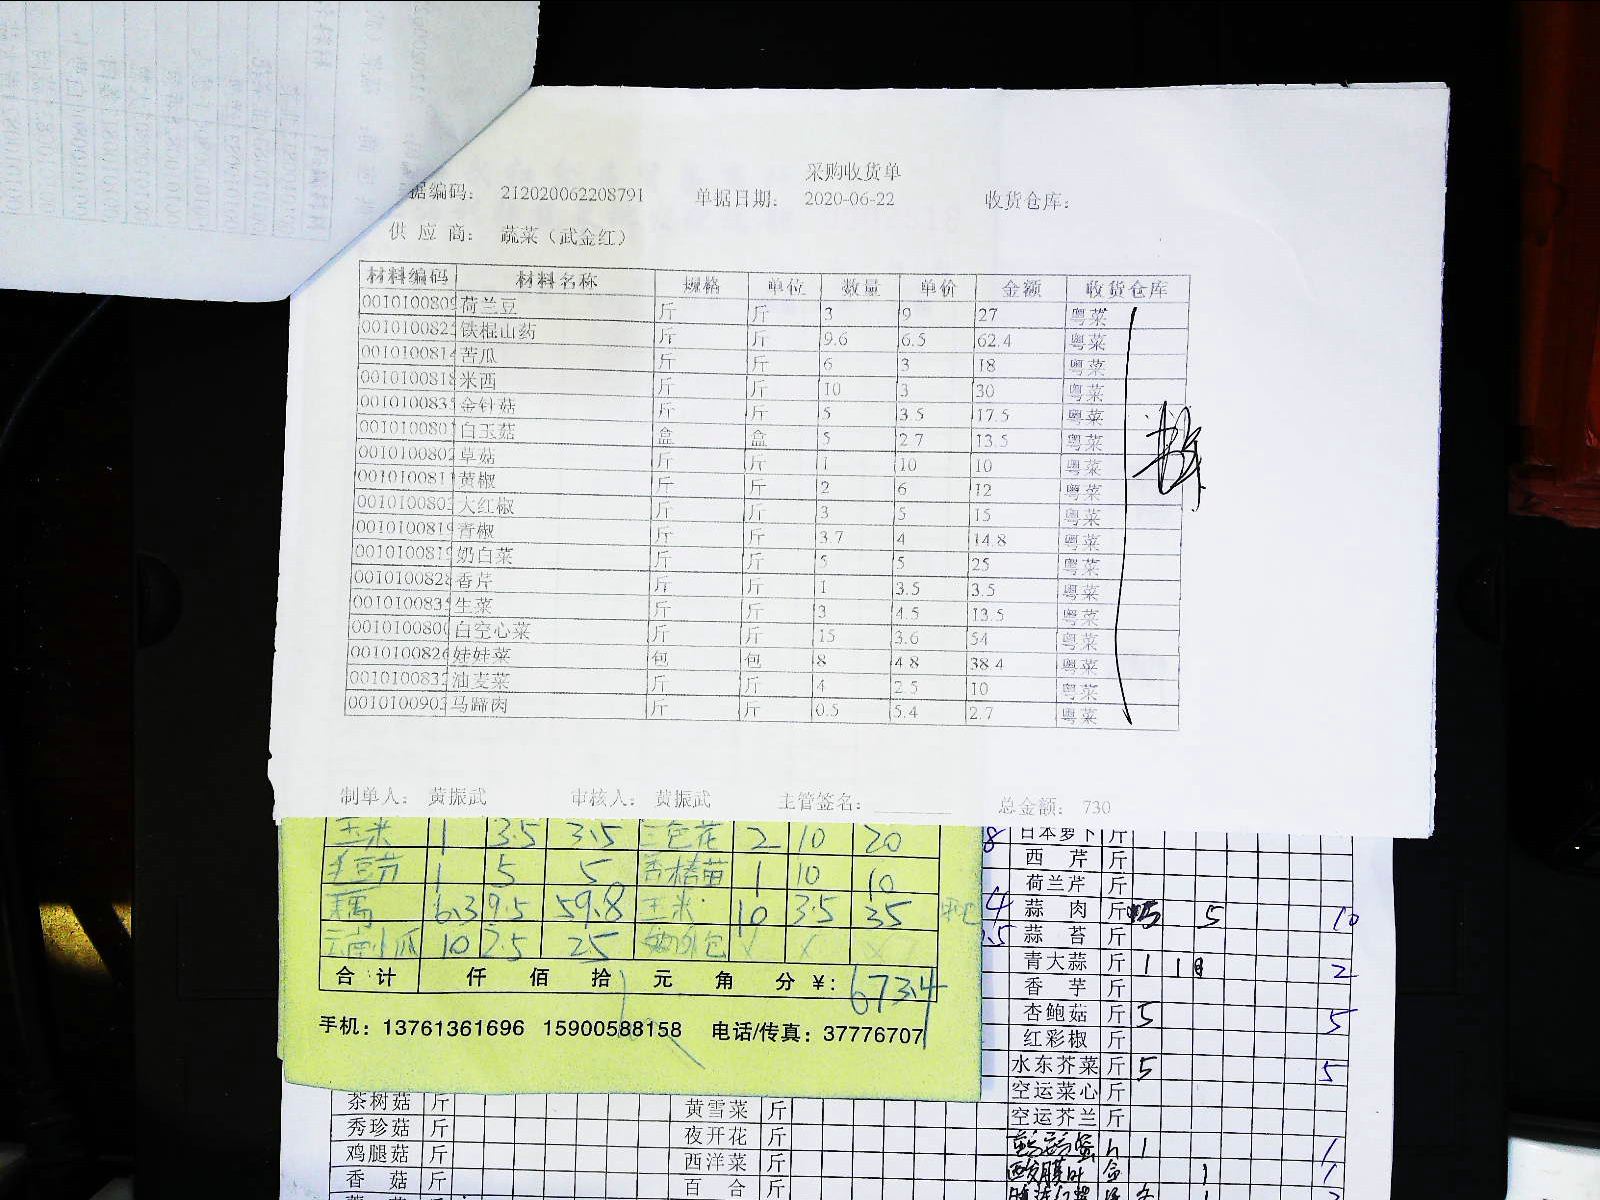 采购收货单
据编码: 212020062208791 单据日期: 2020-06-22 收货仓库:
供 应 商: 蔬菜(武金红)
材料编码 材料名称 规格 单位 数量 单价 金额 收货仓库
0010100809 荷兰豆 斤 斤 3 9 27 粤菜
001010082 铁棍山药 斤 斤 9.6 6.5 62.4 粤菜
0010100814 苦瓜 斤 斤 6 3 18 粤菜
0010100818 米西 斤 斤 10 3 30 粤菜
001010083 金针菇 斤 斤 5 3.5 17.5 粤菜
001010080 白玉菇 盒 盒 5 2.7 13.5 粤菜
0010100802 草菇 斤 斤 1 10 10 粤菜
001010081 黄椒 斤 斤 2 6 12 粤菜
001010080 大红椒 斤 斤 3 5 15 粤菜
0010100819 青椒 斤 斤 3.7 4 14.8 粤菜
001010081 奶白菜 斤 斤 5 5 25 粤菜
0010100828 香芹 斤 斤 1 3.5 3.5 粤菜
001010083 生菜 斤 斤 3 4.5 13.5 粤菜
0010100800 白空心菜 斤 斤 15 3.6 54 粤菜
0010100826 娃娃菜 包 包 8 4.8 38.4 粤菜
001010083 油麦菜 斤 斤 4 2.5 10 粤菜
001010090 马蹄肉 斤 斤 0.5 5.4 2.7 粤菜
制单人: 黄振武 审核人: 黄振武 主管签名: 总金额: 730
玉米 1 3.5 3.5 三色花 2 10 20
1 5 5 香椿苗 1 10 10
6.3 9.5 59.8 玉米 10 3.5 35
云南小瓜 10 2.5 25
合 计 仟 佰 拾 元 角 分 ¥: 673.4
手机: 13761361696 15900588158 电话/传真: 37776707
日本萝卜 斤
西 芹 斤
荷兰芹 斤
蒜 肉 斤 5 5 10
蒜 苔 斤
青大蒜 斤 1 1 2
香 芋 斤
杏鲍菇 斤 5 5
红彩椒 斤
水东芥菜 斤 5 5
空运菜心 斤
空运芥兰 斤
茶树菇 斤 黄雪菜 斤
秀珍菇 斤 夜开花 斤
鸡腿菇 斤 西洋菜 斤
香 菇 斤 百 合 斤